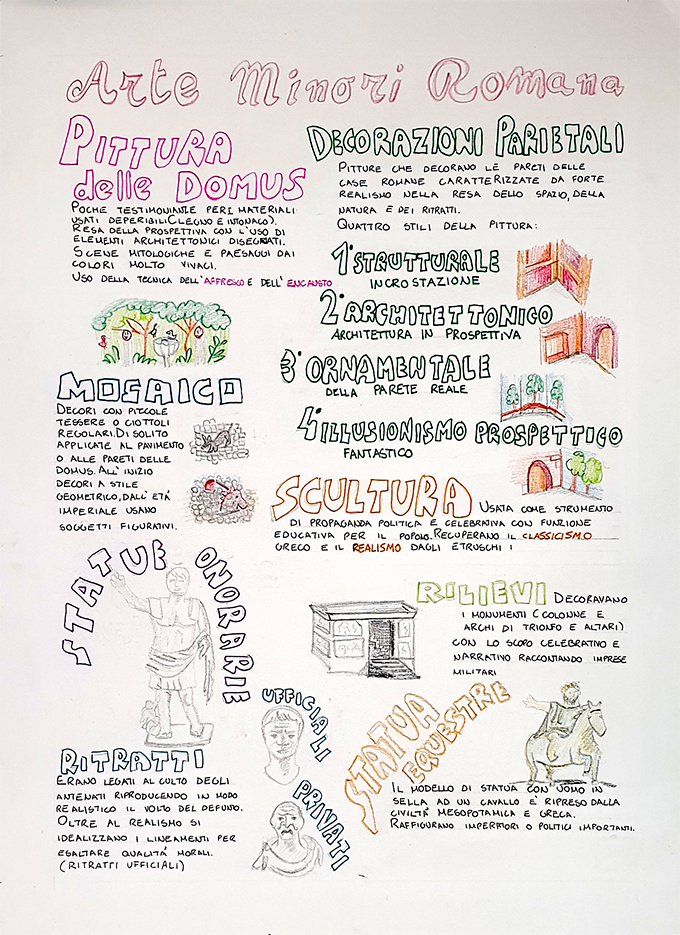 Arte Minori Romana
PITTURA
delle DOMUS
POCHE TESTIMONIANZE PER I MATERIALI
USATI DEPERIBILI (LEGNO E INTONACO).
RESA DELLA PROSPETTIVA CON L'USO DI
ELEMENTI ARCHITETTONICI DISEGNATI.
SCENE MITOLOGICHE E PAESAGGI DAI
COLORI MOLTO VIVACI.
USO DELLA TECNICA DELL'AFFRESCO E DELL'ENCAUSTO
DECORAZIONI PARIETALI
PITTURE CHE DECORANO LE PARETI DELLE
CASE ROMANE CARATTERIZZATE DA FORTE
REALISMO NELLA RESA DELLO SPAZIO, DELLA
NATURA E DEI RITRATTI.
QUATTRO STILI DELLA PITTURA:
1° STRUTTURALE
INCROSTAZIONE
2° ARCHITETTONICO
ARCHITETTURA IN PROSPETTIVA
3° ORNAMENTALE
DELLA PARETE REALE
4° ILLUSIONISMO PROSPETTICO
FANTASTICO
MOSAICO
DECORI CON PICCOLE
TESSERE O CIOTTOLI
REGOLARI. DI SOLITO
APPLICATE AL PAVIMENTO
O ALLE PARETI DELLE
DOMUS. ALL'INIZIO
DECORI A STILE
GEOMETRICO, DALL'ETÀ
IMPERIALE USANO
SOGGETTI FIGURATIVI.
SCULTURA USATA COME STRUMENTO
DI PROPAGANDA POLITICA E CELEBRATIVA CON FUNZIONE
EDUCATIVA PER IL POPOLO. RECUPERANO IL CLASSICISMO
GRECO E IL REALISMO DAGLI ETRUSCHI:
STATUE ONORARIE
RILIEVI DECORAVANO
I MONUMENTI (COLONNE E
ARCHI DI TRIONFO E ALTARI)
CON LO SCOPO CELEBRATIVO E
NARRATIVO RACCONTANDO IMPRESE
MILITARI
RITRATTI
ERANO LEGATI AL CULTO DEGLI
ANTENATI RIPRODUCENDO IN MODO
REALISTICO IL VOLTO DEL DEFUNTO.
OLTRE AL REALISMO SI
IDEALIZZANO I LINEAMENTI PER
ESALTARE QUALITÀ MORALI.
(RITRATTI UFFICIALI)
UFFICIALI
PRIVATI
STATUA
EQUESTRE
IL MODELLO DI STATUA CON UOMO IN
SELLA AD UN CAVALLO È RIPRESO DALLA
CIVILTÀ MESOPOTAMICA E GRECA.
RAFFIGURANO IMPERATORI O POLITICI IMPORTANTI.